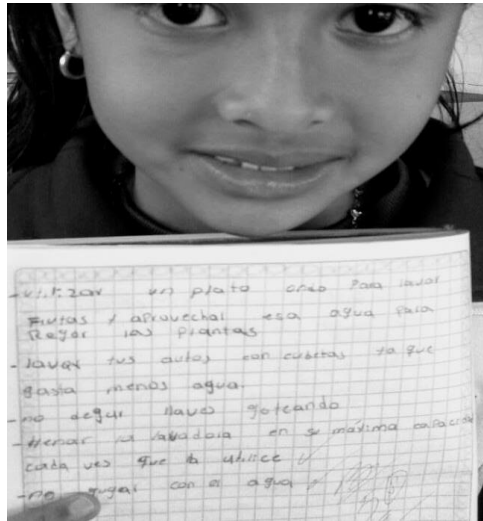 - utilizar un plato ondo para lavar
Frutas y aprovechar esa agua para
Regar las plantas
- lavar tus autos con cubetas ya que
gasta menos agua.
- no degar llaves goteando
- llenar la lavadora en su máxima capacidad
cada ves que la utilice
- no gugar con el agua